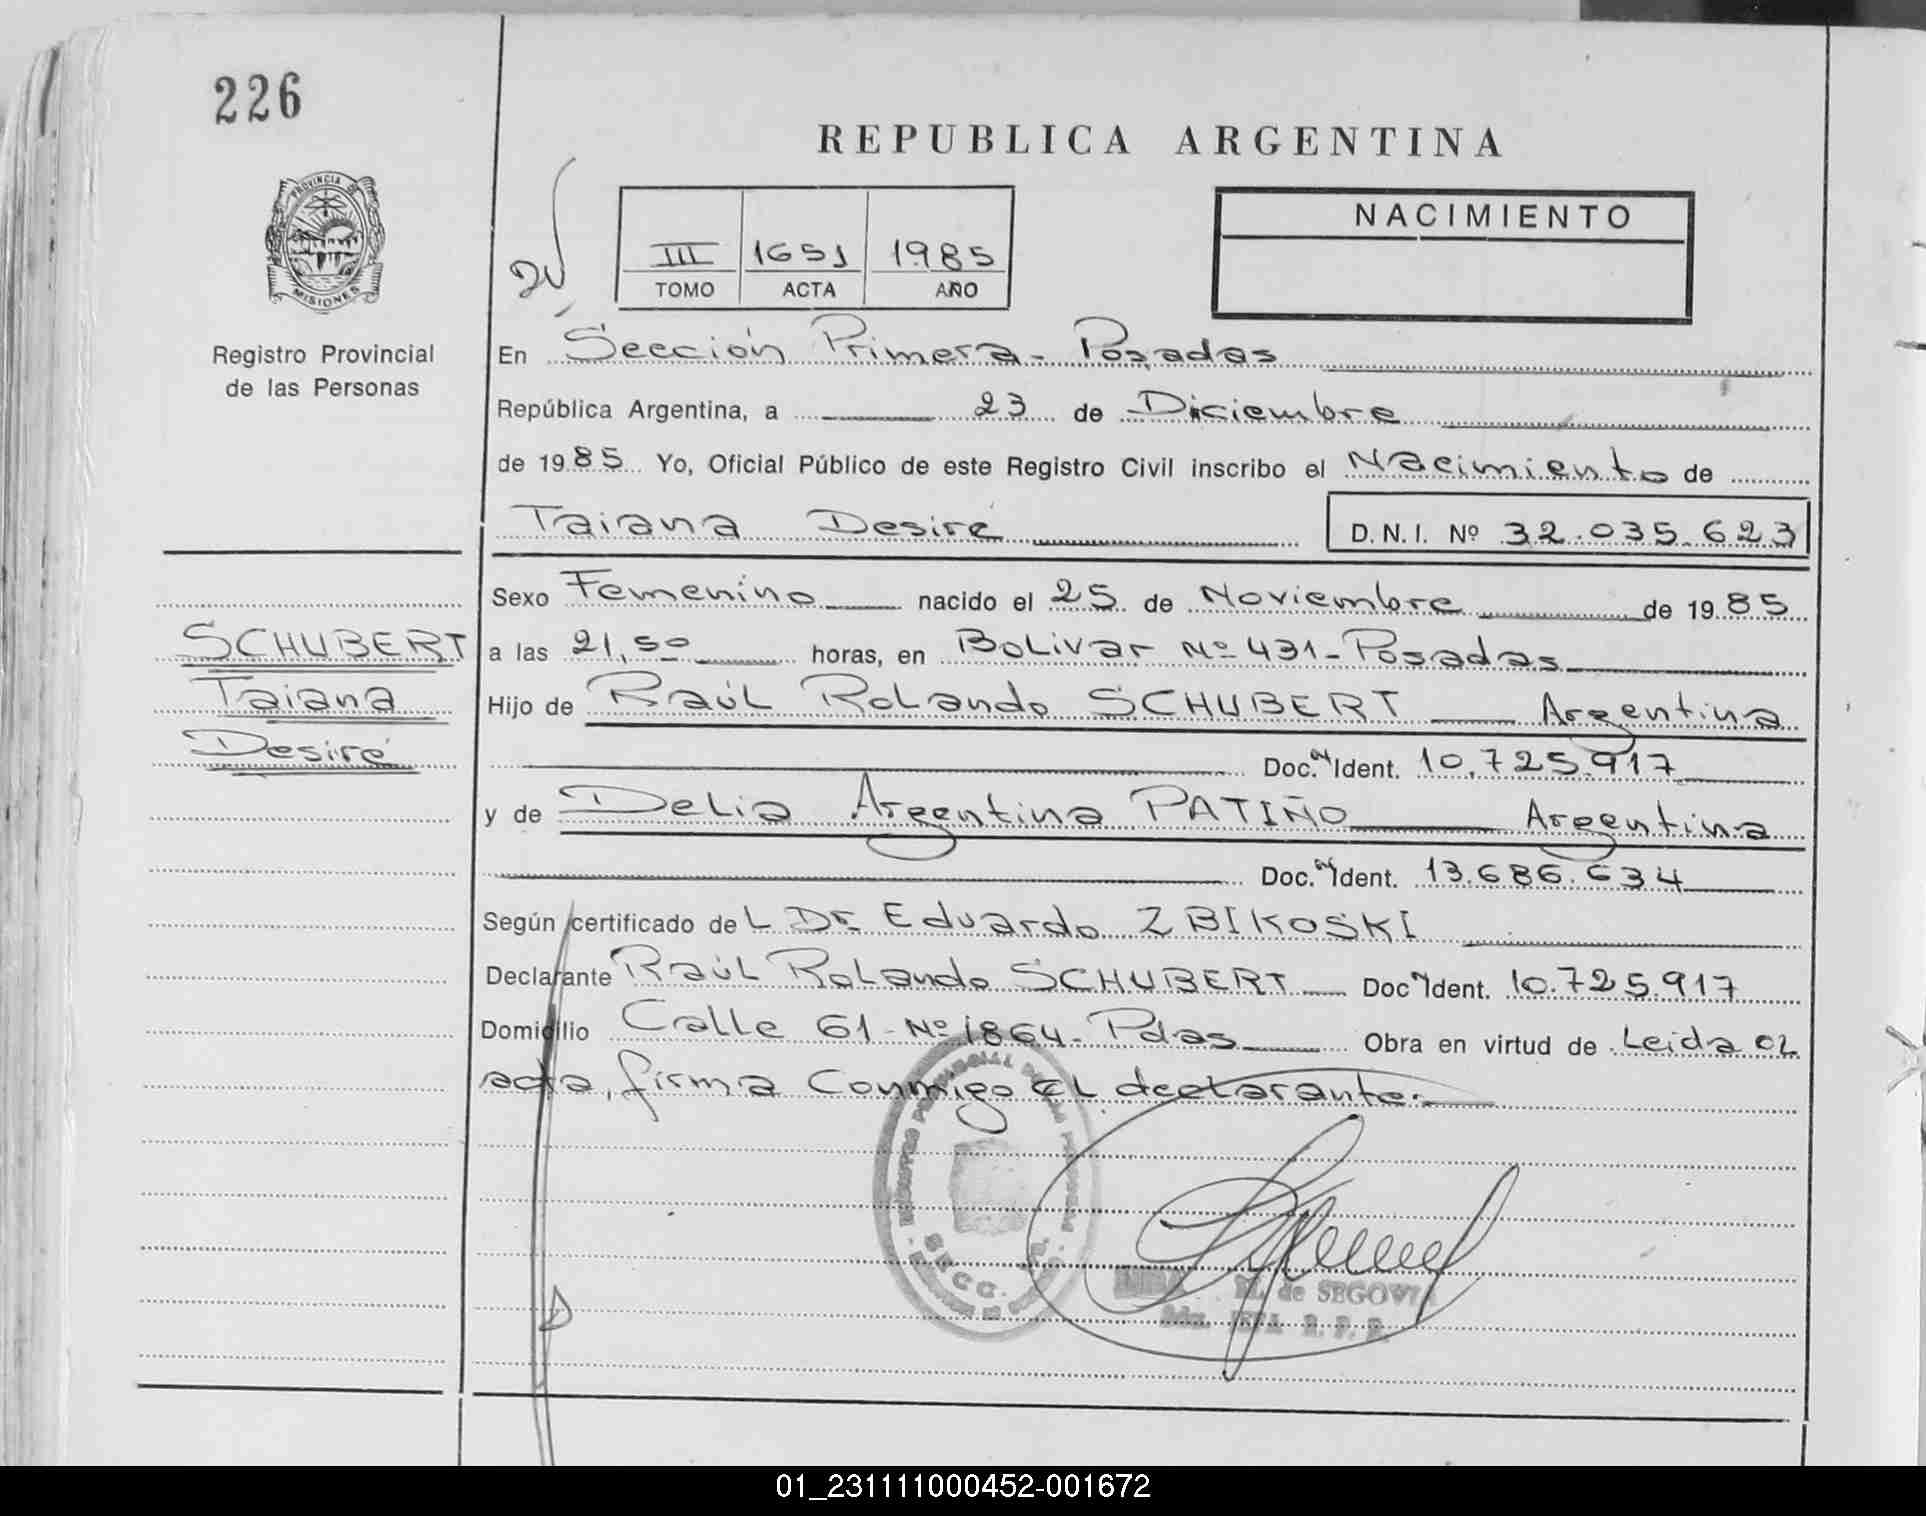 226
REPUBLICA ARGENTINA
PROVINCIA DE
MISIONES
Registro Provincial
de las Personas
III 1651 1985
TOMO ACTA AÑO
NACIMIENTO
En Sección Primera - Posadas
República Argentina, a 23 de Diciembre
de 1985 Yo, Oficial Público de este Registro Civil inscribo el Nacimiento de
Taiana Desiré D.N.I. Nº 32.035.623
Sexo Femenino nacido el 25 de Noviembre de 1985
SCHUBERT
Taiana
Desiré
a las 21,50 horas, en Bolivar Nº 431 - Posadas
Hijo de Raúl Rolando SCHUBERT Argentina
Doc. N Ident. 10.725.917
y de Delia Argentina PATIÑO Argentina
Doc. N Ident. 13.686.634
Según certificado deL Dr. Eduardo ZBIKOSKI
Declarante Raúl Rolando SCHUBERT Doc N Ident. 10.725.917
Domicilio Calle 61 - Nº 1864 - Pdas Obra en virtud de Leida el
acta, firma conmigo el declarante.-
SECC.
M. de SEGOVIA
JEFA R. P. P.
01_231111000452-001672